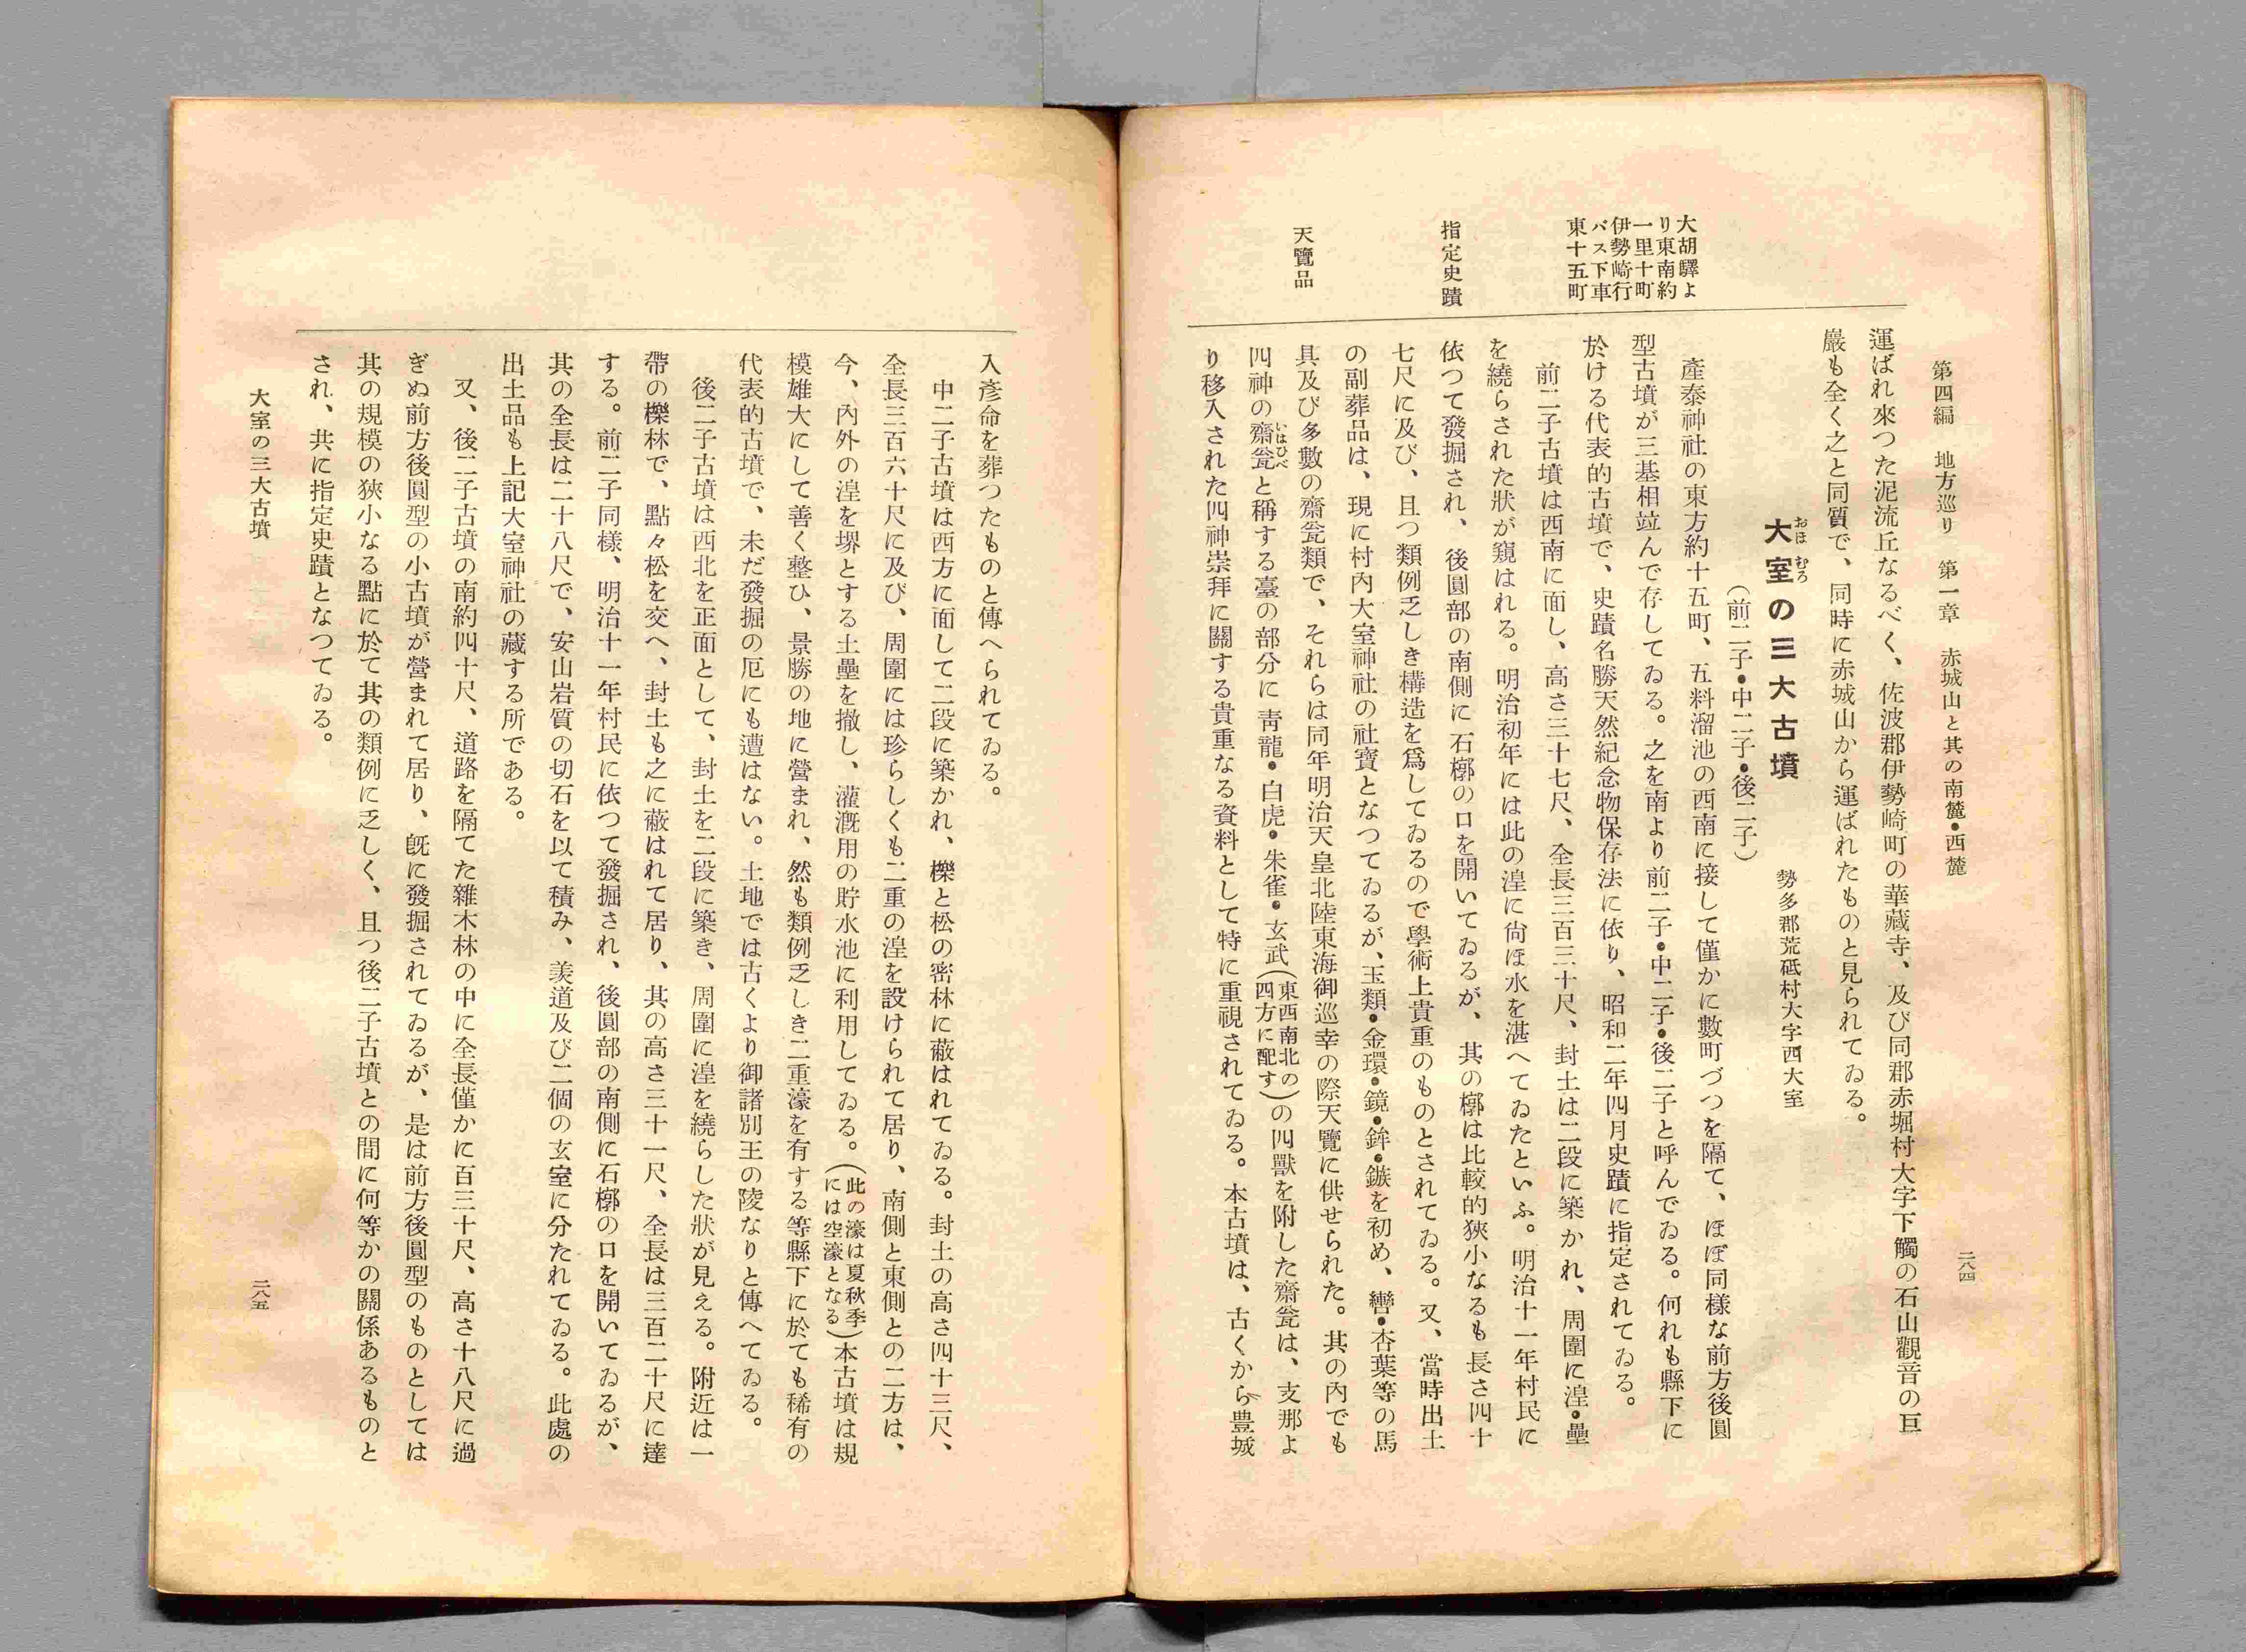 第四編 地方巡り 第一章 赤城山と其の南麓・西麓
二八四
運ばれ來つた泥流丘なるべく、佐波郡伊勢崎町の華藏寺、及び同郡赤堀村大字下觸の石山觀音の巨
巖も全く之と同質で、同時に赤城山から運ばれたものと見られてゐる。
大室の三大古墳
おほむろ
勢多郡荒砥村大字西大室
(前二子・中二子・後二子)
大胡驛よ
り東南約
一里十町
伊勢崎行
バス下車
東十五町
產泰神社の東方約十五町、五料溜池の西南に接して僅かに數町づつを隔て、ほぼ同樣な前方後圓
型古墳が三基相竝んで存してゐる。之を南より前二子・中二子・後二子と呼んでゐる。何れも縣下に
於ける代表的古墳で、史蹟名勝天然紀念物保存法に依り、昭和二年四月史蹟に指定されてゐる。
前二子古墳は西南に面し、高さ三十七尺、全長三百三十尺、封土は二段に築かれ、周圍に湟・壘
を繞らされた狀が窺はれる。明治初年には此の湟に尙ほ水を湛へてゐたといふ。明治十一年村民に
指定史蹟
依つて發掘され、後圓部の南側に石槨の口を開いてゐるが、其の槨は比較的狹小なるも長さ四十
七尺に及び、且つ類例乏しき構造を爲してゐるので學術上貴重のものとされてゐる。又、當時出土
の副葬品は、現に村內大室神社の社寶となつてゐるが、玉類・金環・鏡・鉾・鏃を初め、轡・杏葉等の馬
天覽品
具及び多數の齋瓮類で、それらは同年明治天皇北陸東海御巡幸の際天覽に供せられた。其の內でも
四神の齋瓮と稱する臺の部分に靑龍・白虎・朱雀・玄武(東西南北の四方に配す)の四獸を附した齋瓮は、支那よ
いはひべ
り移入された四神崇拜に關する貴重なる資料として特に重視されてゐる。本古墳は、古くから豊城
入彥命を葬つたものと傳へられてゐる。
中二子古墳は西方に面して二段に築かれ、櫟と松の密林に蔽はれてゐる。封土の高さ四十三尺、
全長三百六十尺に及び、周圍には珍らしくも二重の湟を設けられて居り、南側と東側との二方は、
今、內外の湟を堺とする土壘を撤し、灌漑用の貯水池に利用してゐる。(此の濠は夏秋季には空濠となる)本古墳は規
模雄大にして善く整ひ、景勝の地に營まれ、然も類例乏しき二重濠を有する等縣下に於ても稀有の
代表的古墳で、未だ發掘の厄にも遭はない。土地では古くより御諸別王の陵なりと傳へてゐる。
後二子古墳は西北を正面として、封土を二段に築き、周圍に湟を繞らした狀が見える。附近は一
帶の櫟林で、點々松を交へ、封土も之に蔽はれて居り、其の高さ三十一尺、全長は三百二十尺に達
する。前二子同樣、明治十一年村民に依つて發掘され、後圓部の南側に石槨の口を開いてゐるが、
其の全長は二十八尺で、安山岩質の切石を以て積み、羨道及び二個の玄室に分たれてゐる。此處の
出土品も上記大室神社の藏する所である。
又、後二子古墳の南約四十尺、道路を隔てた雜木林の中に全長僅かに百三十尺、高さ十八尺に過
ぎぬ前方後圓型の小古墳が營まれて居り、旣に發掘されてゐるが、是は前方後圓型のものとしては
其の規模の狹小なる點に於て其の類例に乏しく、且つ後二子古墳との間に何等かの關係あるものと
され、共に指定史蹟となつてゐる。
大室の三大古墳
二八五